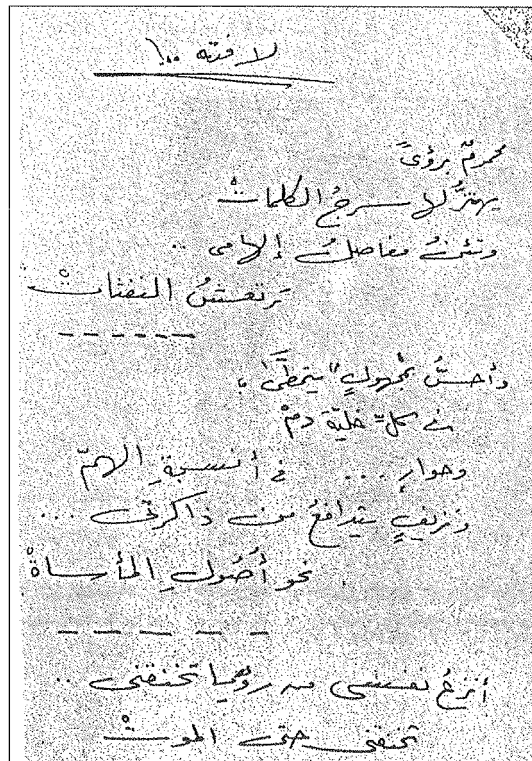 لا فتة ١٠٠
محموم برؤىً
يهتزُّ لا سرجُ الكلماتْ
وتئنُّ مفاصلُ إلامى ..
ترتعشُ النفثاتْ
وأحسُّ بمجهولٍ "يتمطَّى"
في كلِّ خليّة دمْ
وحوارٍ ... في أنسجةِ الهمّ
ونزيفٍ يتدافعُ من ذاكرتى ...
نحو أُصُولِ المأساةْ
أنزعُ نفسى من رؤيا تخنقنى ..
تخنقنى حتى الموتْ